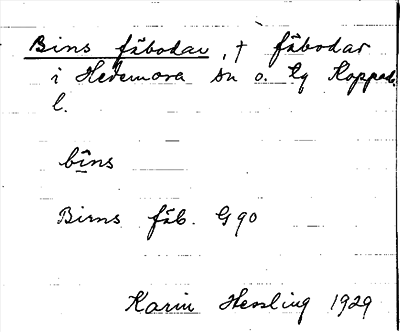 Bins fäbodar, † fäbodar
i Hedemora sn o. lg Koppab.
l.
bīns
Birns fäb. G 90
Karin Hessling 1929